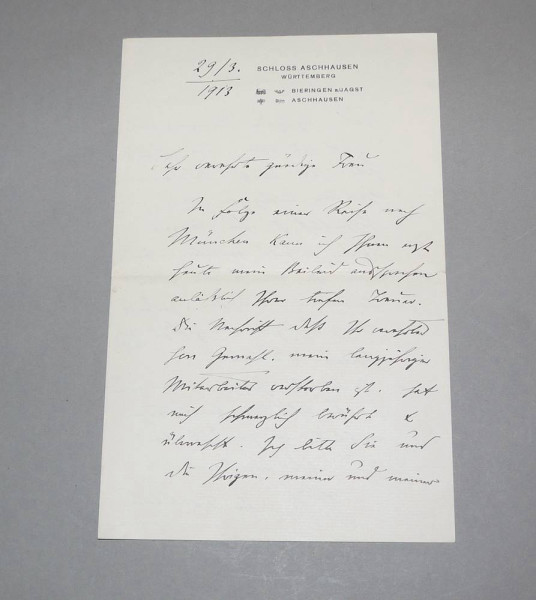 29/3.
1913
SCHLOSS ASCHHAUSEN
WÜRTTEMBERG
BIERINGEN a/JAGST
ASCHHAUSEN
Sehr verehrte gnädige Frau
In Folge einer Reise nach
München kann ich Ihnen erst
heute mein Beileid aussprechen
anläßlich Ihrer tiefen Trauer.
Die Nachricht daß Ihr verehrter
Herr Gemahl, mein langjähriger
Mitarbeiter verstorben ist, hat
mich schmerzlich berührt &
überrascht. Ich bitte Sie und
die Ihrigen, meiner und meiner